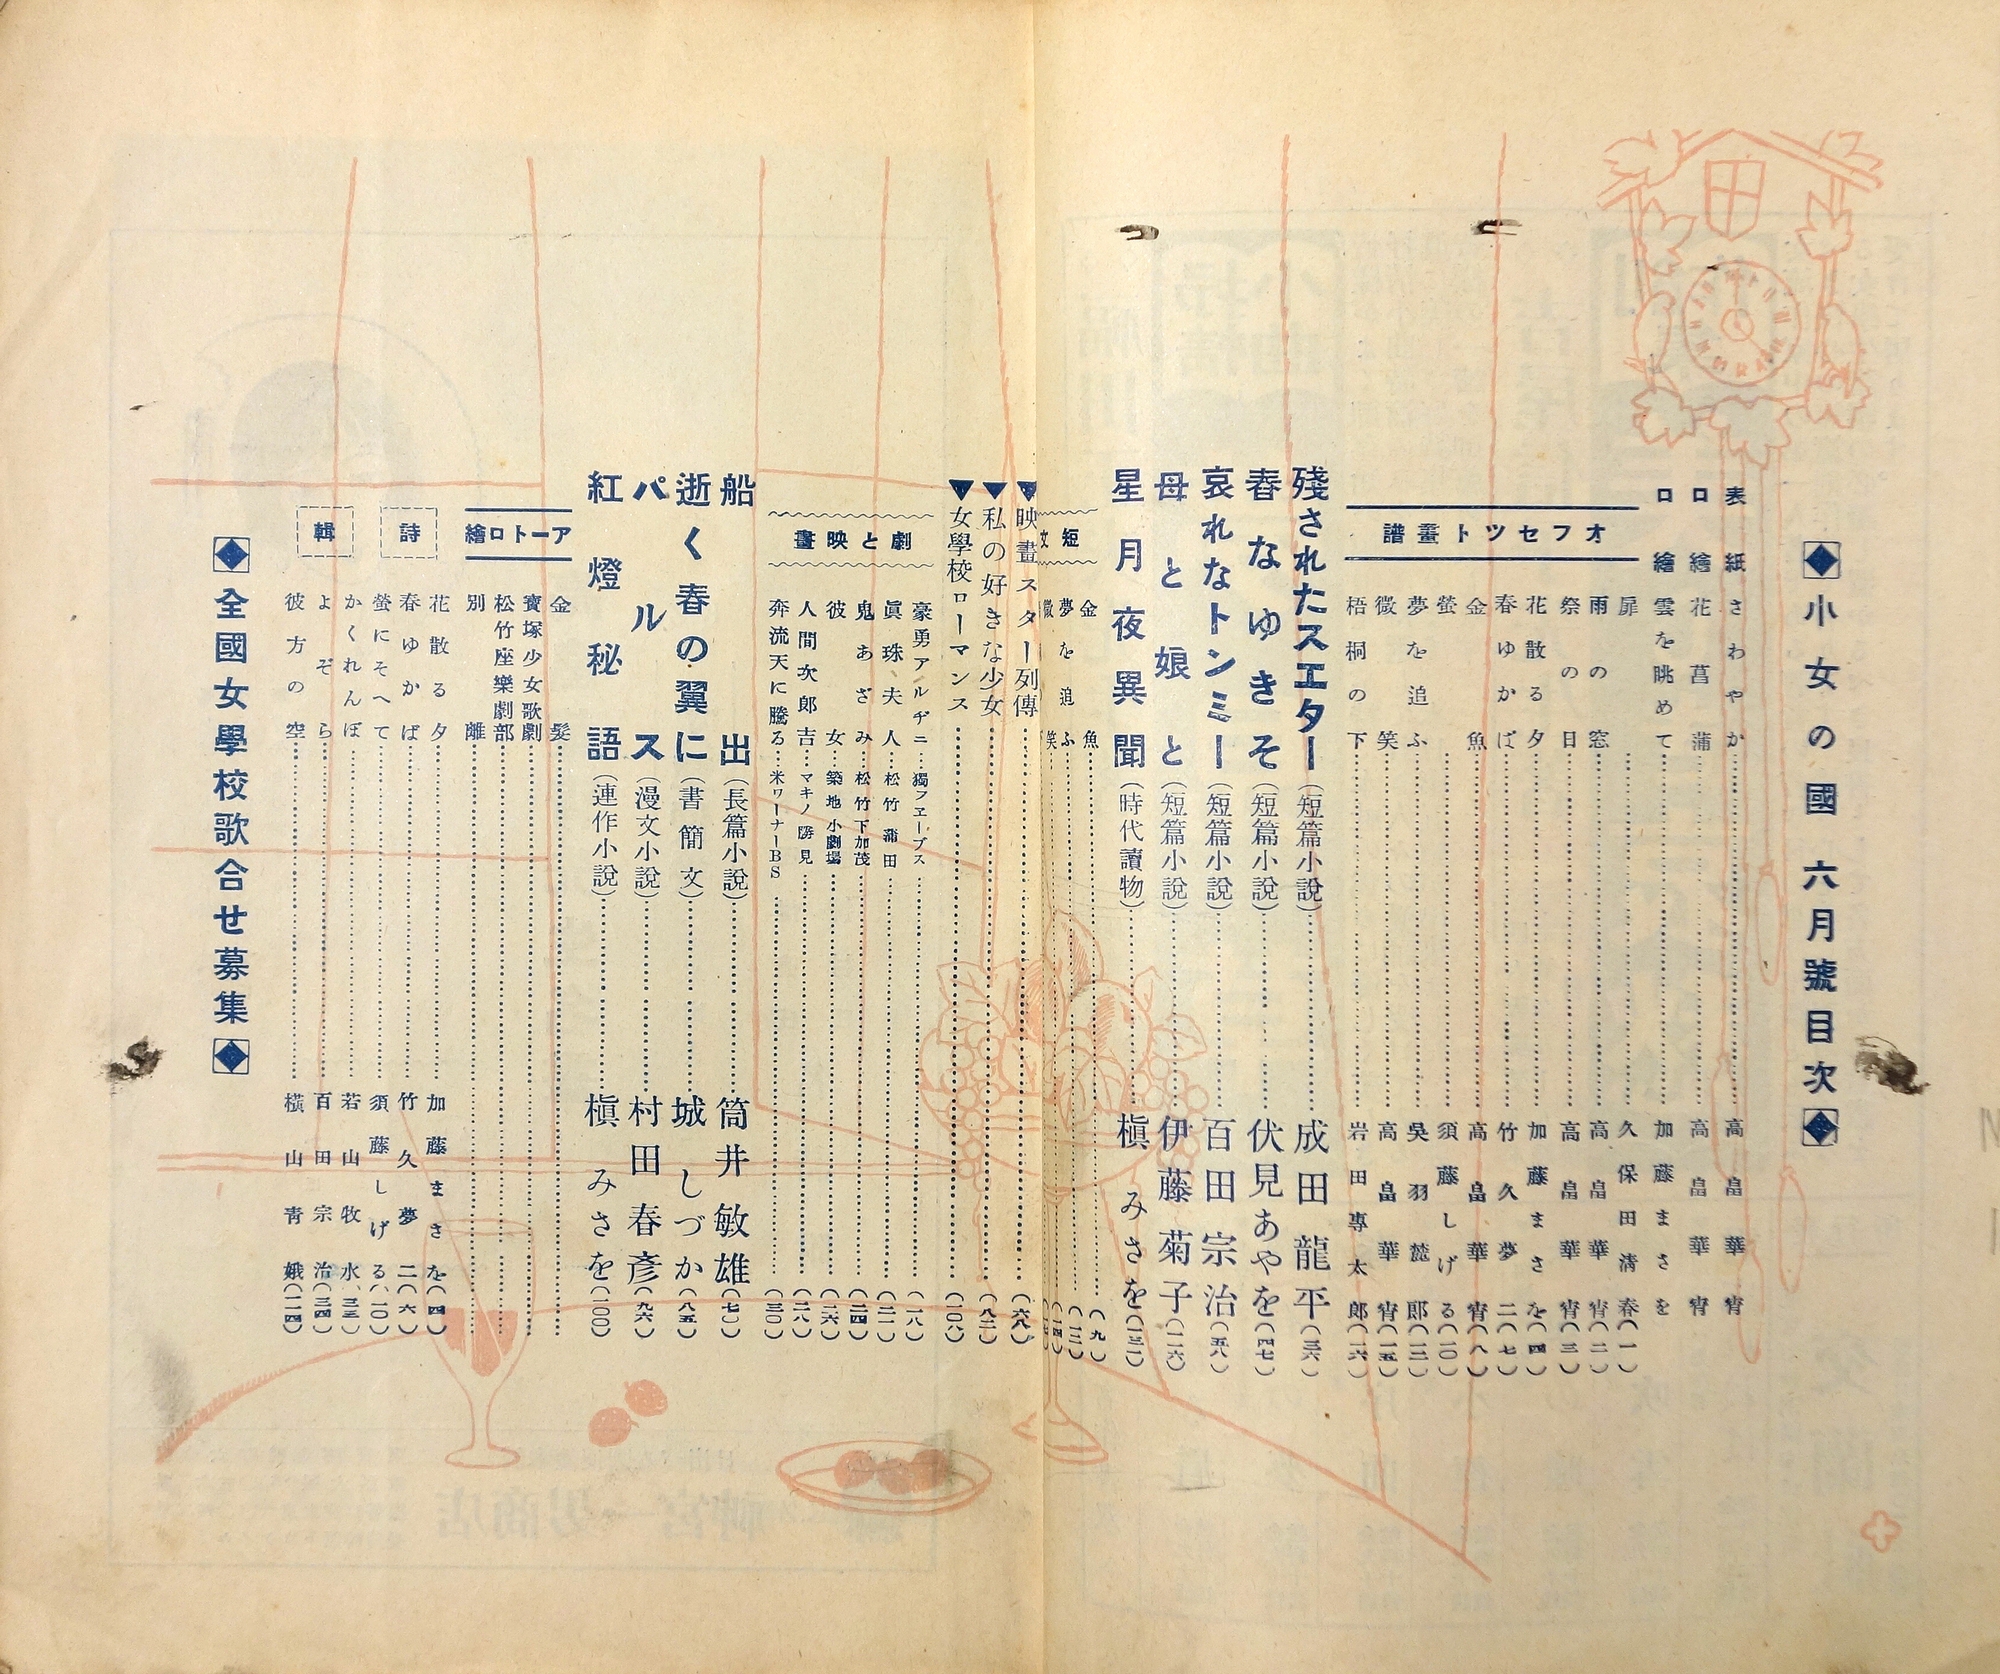 小女の國 六月號目次
表紙 さわやか 高畠華宵
口繪 花菖蒲 高畠華宵
口繪 雲を眺めて 加藤まさを
オフセツト畫譜
扉 久保田清春(一)
雨の窓 高畠華宵(二)
祭の日 高畠華宵(三)
花散る夕 加藤まさを(四)
春ゆかば 竹久夢二(七)
金魚 高畠華宵(八)
螢 須藤しげる(一〇)
夢を追ふ 吳羽麓郎(一二)
微笑 高畠華宵(一五)
梧桐の下 岩田專太郎(一六)
殘されたスエター(短篇小說) 成田龍平(三六)
春なゆきそ(短篇小說) 伏見あやを(四七)
哀れなトンミー(短篇小說) 百田宗治(五八)
母と娘と(短篇小說) 伊藤菊子(一一六)
星月夜異聞(時代讀物) 槇みさを(一三一)
短
金魚(九)
夢を追ふ(一三)
微笑(一四)
映畫スター列傳(六八)
私の好きな少女(八二)
女學校ローマンス(一〇六)
劇と映畫
豪勇アルヂニ 獨フエーブス(一八)
眞珠夫人 松竹蒲田(二一)
鬼あざみ 松竹下加茂(二四)
彼女 築地小劇場(二六)
人間次郎吉 マキノ勝見(二八)
奔流天に騰る 米ワーナーBS(三〇)
船出(長篇小說) 筒井敏雄(七一)
逝く春の翼に(書簡文) 城しづか(八五)
パルス(漫文小說) 村田春彥(九六)
紅燈秘語(連作小說) 槇みさを(一〇〇)
アート口繪
金髮
寶塚少女歌劇
松竹座樂劇部
別離
詩輯
花散る夕 加藤まさを(四)
春ゆかば 竹久夢二(六)
螢にそへて 須藤しげる(一〇)
かくれんぼ 若山牧水(三三)
よぞら 百田宗治(三四)
彼方の空 橫山靑娥(一一四)
全國女學校歌合せ募集